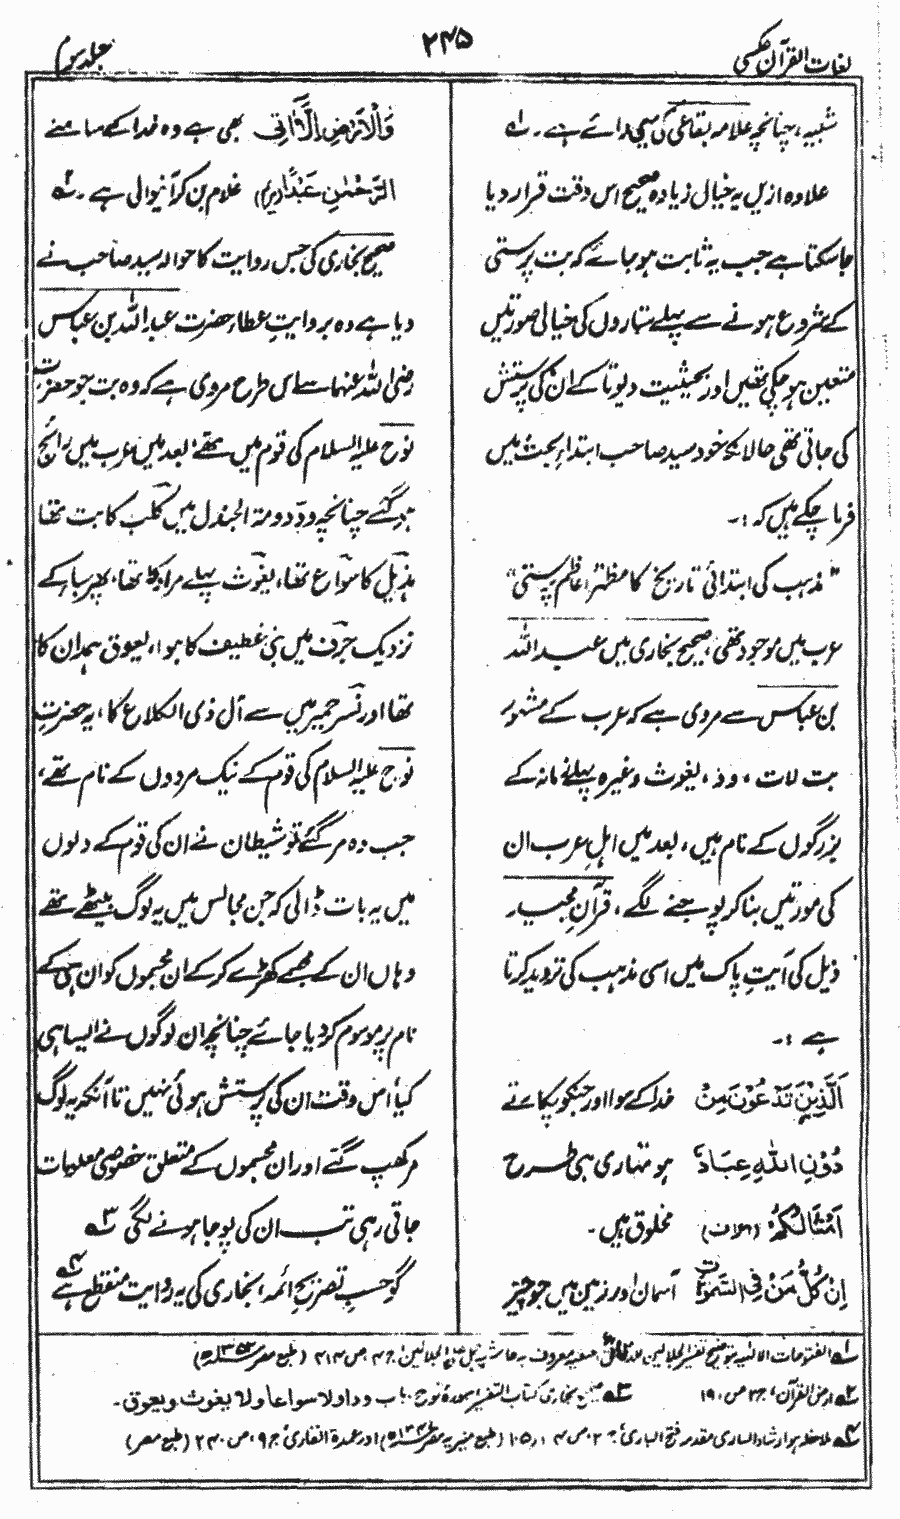 لغات القرآن عکسی
۲۴۵
جلد سوم
شبیہ، چنانچہ علامہ بقاعی کی یہی رائے ہے۔ لہ
علاوہ ازیں یہ خیال زیادہ صحیح اس وقت قرار دیا
جاسکتا ہے جب یہ ثابت ہو جائے کہ بت پرستی
کے شروع ہونے سے پہلے ستاروں کی خیالی صورتیں
متعین ہو چکی تھیں اور بحیثیت دیوتا کے ان کی پرستش
کی جاتی تھی حالانکہ خود سید صاحب ابتداءِ بحث میں
فرما چکے ہیں کہ :۔
" مذہب کی ابتدائی تاریخ کا مظہر اعظم پرستی "
عرب میں موجود تھی، صحیح بخاری میں عبد اللہ
بن عباس سے مروی ہے کہ عرب کے مشہور
بت لات ، ود ، یغوث وغیرہ پہلے زمانہ کے
بزرگوں کے نام ہیں ، بعد میں اہلِ عرب ان
کی مورتیں بنا کر پوجنے لگے ، قرآن مجید
ذیل کی آیتِ پاک میں اسی مذہب کی تردید کرتا
ہے :۔
اَلَّذِیْنَ تَدْعُوْنَ مِنْ خدا کے سوا اور جنکو پکارتے
دُوْنِ اللّٰهِ عِبَادٌ ہو تمہاری ہی طرح
اَمْثَالُکُمْ (اعراف) مخلوق ہیں ۔
اِنْ کُلُّ مَنْ فِی السَّمٰوٰتِ آسمان اور زمین میں جو چیز
وَالْاَرْضِ اِلَّا اٰتِی بھی ہے وہ خدا کے سامنے
الرَّحْمٰنِ عَبْدًا (مریم) غلام بن کر آنیوالی ہے ۔ ۲ہ
صحیح بخاری کی جس روایت کا حوالہ سید صاحب نے
دیا ہے وہ بروایتِ عطاء حضرت عبد اللہ بن عباس
رضی اللہ عنہما سے اس طرح مروی ہے کہ وہ بت جو حضرت
نوح علیہ السلام کی قوم میں تھے، بعد میں عرب میں رائج
ہو گئے چنانچہ ودّ دومۃ الجندل میں کلب کا بت تھا
ہذیل کا سواع تھا، یغوث پہلے مراد کا تھا، پھر سبا کے
نزدیک جرف میں بنی غطیف کا ہوا، یعوق ہمدان کا
تھا اور نسر حمیر میں سے آل ذی الکلاع کا، یہ حضرت
نوح علیہ السلام کی قوم کے نیک مردوں کے نام تھے،
جب وہ مر گئے تو شیطان نے ان کی قوم کے دلوں
میں یہ بات ڈالی کہ جن مجالس میں یہ لوگ بیٹھے تھے
وہاں ان کے مجسمے کھڑے کر کے ان مجسموں کو ان ہی کے
نام پر موسوم کر دیا جائے چنانچہ ان لوگوں نے ایسا ہی
کیا اس وقت ان کی پرستش ہوئی نہیں تا آنکہ یہ لوگ
مرکھپ گئے اور ان مجسموں کے متعلق خصوصی معلومات
جاتی رہی تب ان کی پوجا ہونے لگی ۳ہ
گو حسبِ تصریح ائمہ بخاری کی یہ روایت منقطع ہے ۴ہ
۱ہ الفتوحات الالٰہیہ بتوضیح تفسیر الجلالین للدقائق الخفیہ معروف بہ حاشیہ جمل علی الجلالین ج ۴ ص ۴۱۴ (طبع مصر ۱۳۵۳ھ)
۲ہ ارض القرآن ج ۲ ص ۱۹۰ ۳ہ صحیح بخاری کتاب التفسیر سورۃ نوح باب ودا ولا سواعا ولا یغوث ویعوق ۔
۴ہ ملاحظہ ہو ارشاد الساری مقدمہ فتح الباری ج ۲ ص ۱۰۵، (طبع منیریہ مصر ۱۳۴۷ھ) اور عمدۃ القاری ج ۹ ص ۲۴۰ (طبع مصر)